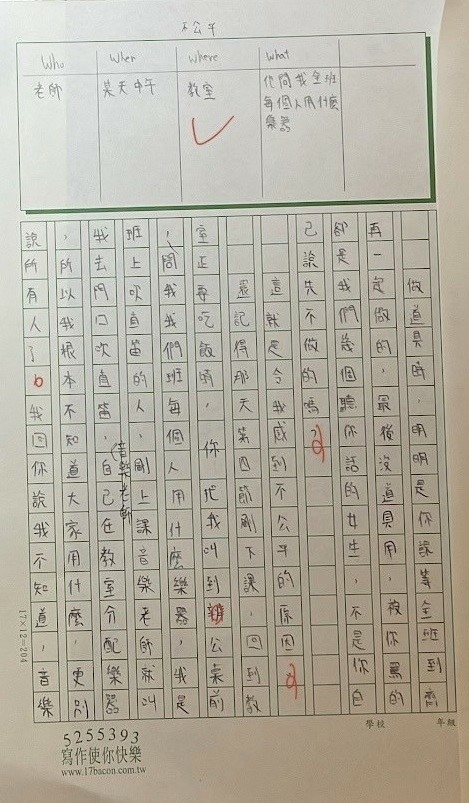 不公平
who
when
where
what
老師
某天中午
教室
他問我全班
每個人用什麼
樂器
做道具時，明明是你說等全班到齊
再一定做的，最後沒道具用，被你罵的
卻是我們幾個聽你話的女生，不是你自
己說先不做的嗎？
這就是令我感到不公平的原因。
還記得那天第四節剛下課，回到教
室正要吃飯時，你把我叫到辦公桌前
，問我我們班每個人用什麼樂器，我是
班上吹直笛的人，剛上課音樂老師就叫
我去門口吹直笛，自己在教室分配樂器
(音樂老師
，所以我根本不知道大家用什麼，更別
說所有人了。我回你說我不知道，音樂
17×12=204
學校
年級
5255393
寫作使你快樂
www.17bacon.com.tw